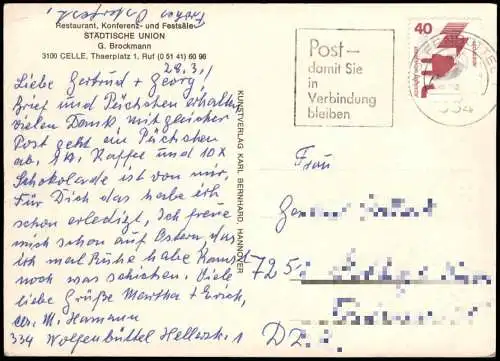 Frohes Osterfest!
Restaurant, Konferenz- und Festsäle
STÄDTISCHE UNION
G. Brockmann
3100 CELLE, Thaerplatz 1, Ruf (0 51 41) 60 96
28.3.
Liebe Gertrud + Georg,
Brief und Päckchen erhalten
vielen Dank mit gleicher
Post geht ein Päckchen
ab, Kaffee und 10x
Schokolade ist von mir,
Für Dich das habe ich
schon erledigt, Ich freue
mich schon auf Ostern, das
ich mal Ruhe habe Kann
noch was schicken. Viele
liebe Grüße Martha + Erich,
M. Hamann
334 Wolfenbüttel 1
KUNSTVERLAG KARL BERNHARD, HANNOVER
Post –
damit Sie
in
Verbindung
bleiben
40
334
Frau
725